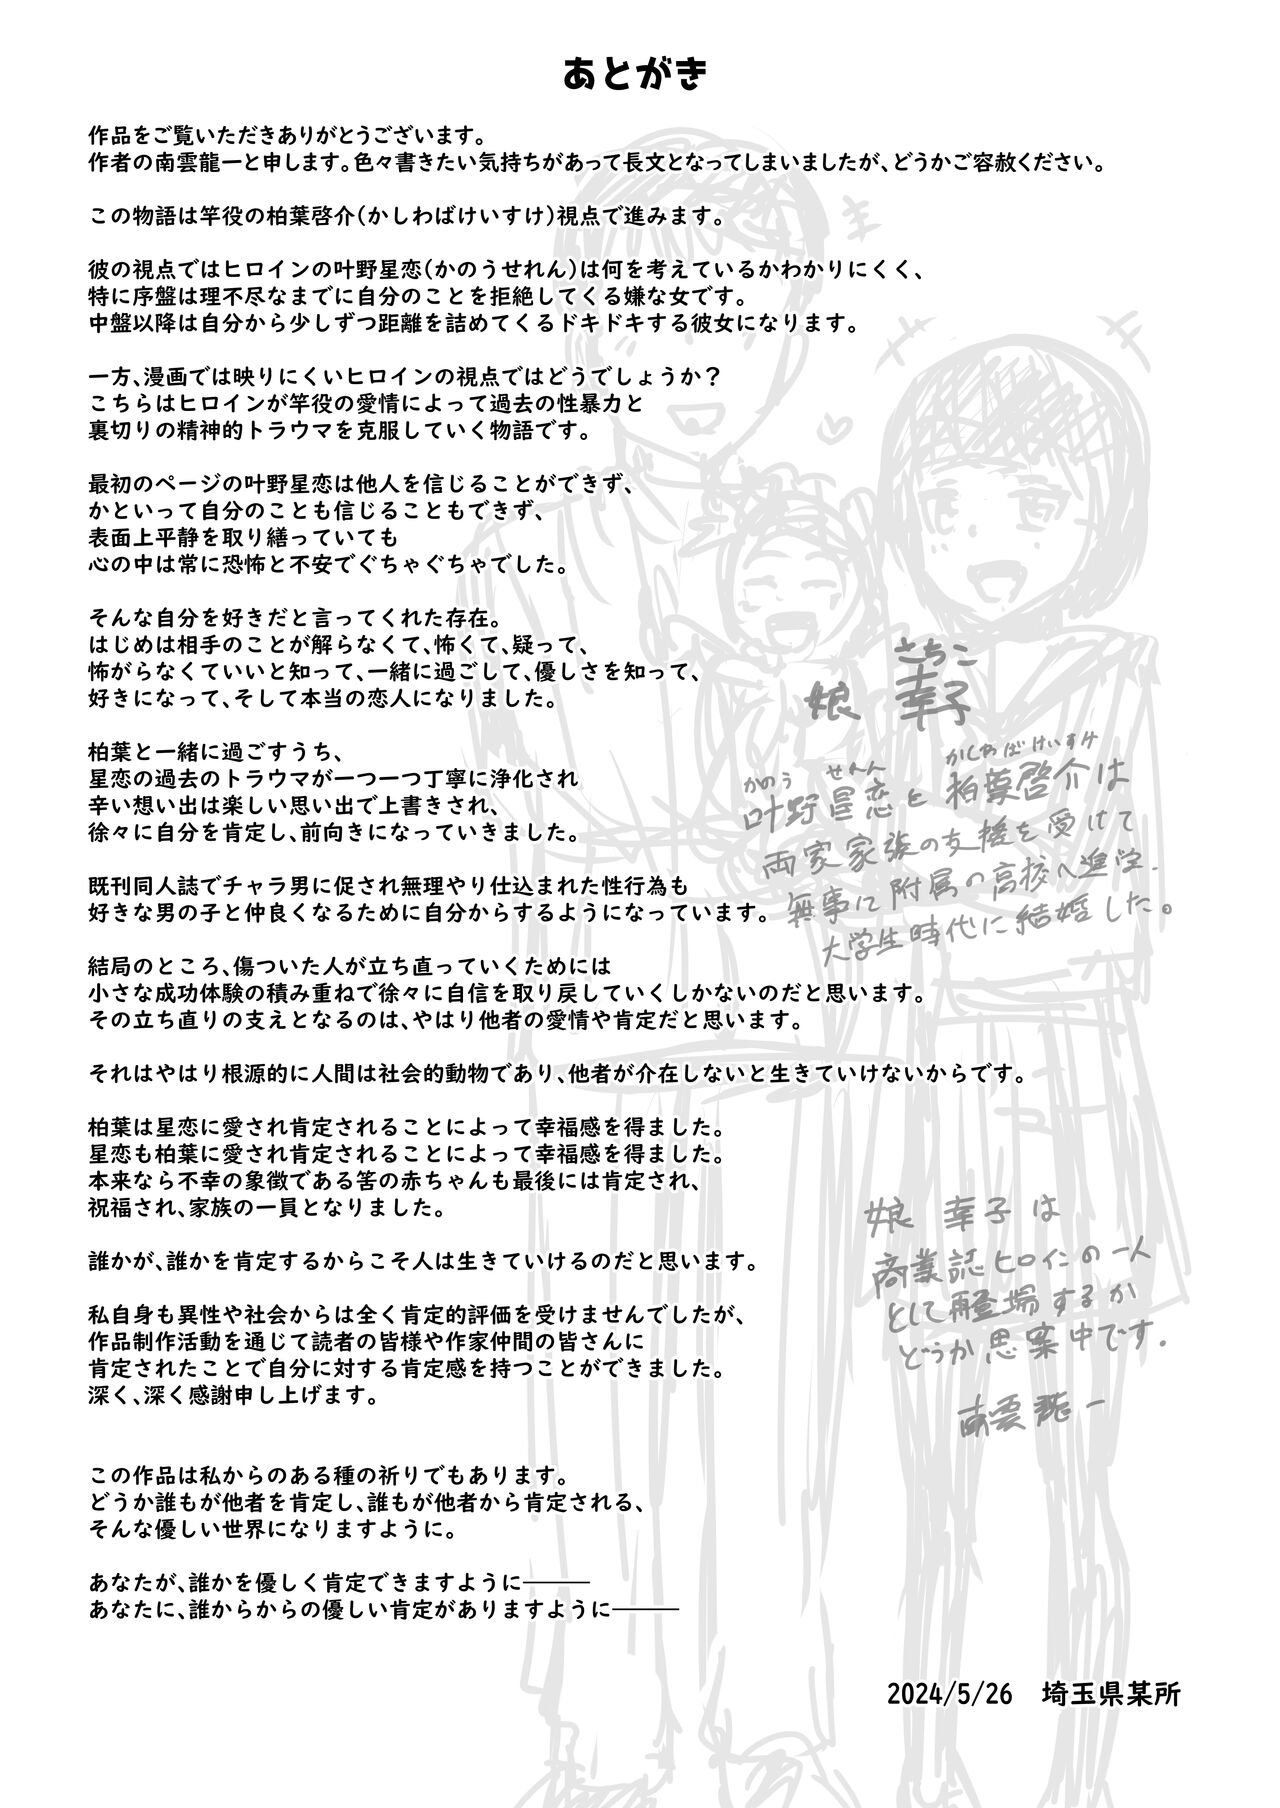 あとがき
作品をご覧いただきありがとうございます。
作者の南雲龍一と申します。色々書きたい気持ちがあって長文となってしまいましたが、どうかご容赦ください。
この物語は竿役の柏葉啓介(かしわばけいすけ)視点で進みます。
彼の視点ではヒロインの叶野星恋(かのうせれん)は何を考えているかわかりにくく、
特に序盤は理不尽なまでに自分のことを拒絶してくる嫌な女です。
中盤以降は自分から少しずつ距離を詰めてくるドキドキする彼女になります。
一方、漫画では映りにくいヒロインの視点ではどうでしょうか？
こちらはヒロインが竿役の愛情によって過去の性暴力と
裏切りの精神的トラウマを克服していく物語です。
最初のページの叶野星恋は他人を信じることができず、
かといって自分のことも信じることもできず、
表面上平静を取り繕っていても
心の中は常に恐怖と不安でぐちゃぐちゃでした。
そんな自分を好きだと言ってくれた存在。
はじめは相手のことが解らなくて、怖くて、疑って、
怖がらなくていいと知って、一緒に過ごして、優しさを知って、
好きになって、そして本当の恋人になりました。
柏葉と一緒に過ごすうち、
星恋の過去のトラウマが一つ一つ丁寧に浄化され
辛い想い出は楽しい思い出で上書きされ、
徐々に自分を肯定し、前向きになっていきました。
既刊同人誌でチャラ男に促され無理やり仕込まれた性行為も
好きな男の子と仲良くなるために自分からするようになっています。
結局のところ、傷ついた人が立ち直っていくためには
小さな成功体験の積み重ねで徐々に自信を取り戻していくしかないのだと思います。
その立ち直りの支えとなるのは、やはり他者の愛情や肯定だと思います。
それはやはり根源的に人間は社会的動物であり、他者が介在しないと生きていけないからです。
柏葉は星恋に愛され肯定されることによって幸福感を得ました。
星恋も柏葉に愛され肯定されることによって幸福感を得ました。
本来なら不幸の象徴である筈の赤ちゃんも最後には肯定され、
祝福され、家族の一員となりました。
誰かが、誰かを肯定するからこそ人は生きていけるのだと思います。
私自身も異性や社会からは全く肯定的評価を受けませんでしたが、
作品制作活動を通じて読者の皆様や作家仲間の皆さんに
肯定されたことで自分に対する肯定感を持つことができました。
深く、深く感謝申し上げます。
この作品は私からのある種の祈りでもあります。
どうか誰もが他者を肯定し、誰もが他者から肯定される、
そんな優しい世界になりますように。
あなたが、誰かを優しく肯定できますように―――
あなたに、誰からからの優しい肯定がありますように―――
2024/5/26 埼玉県某所
さちこ
娘 幸子
かのう せれん かしわばけいすけ
叶野星恋と柏葉啓介は
両家家族の支援を受けて
無事に附属の高校へ進学.
大学生時代に結婚した。
娘 幸子は
商業誌ヒロインの一人
として再登場するか
どうか思案中です.
南雲龍一